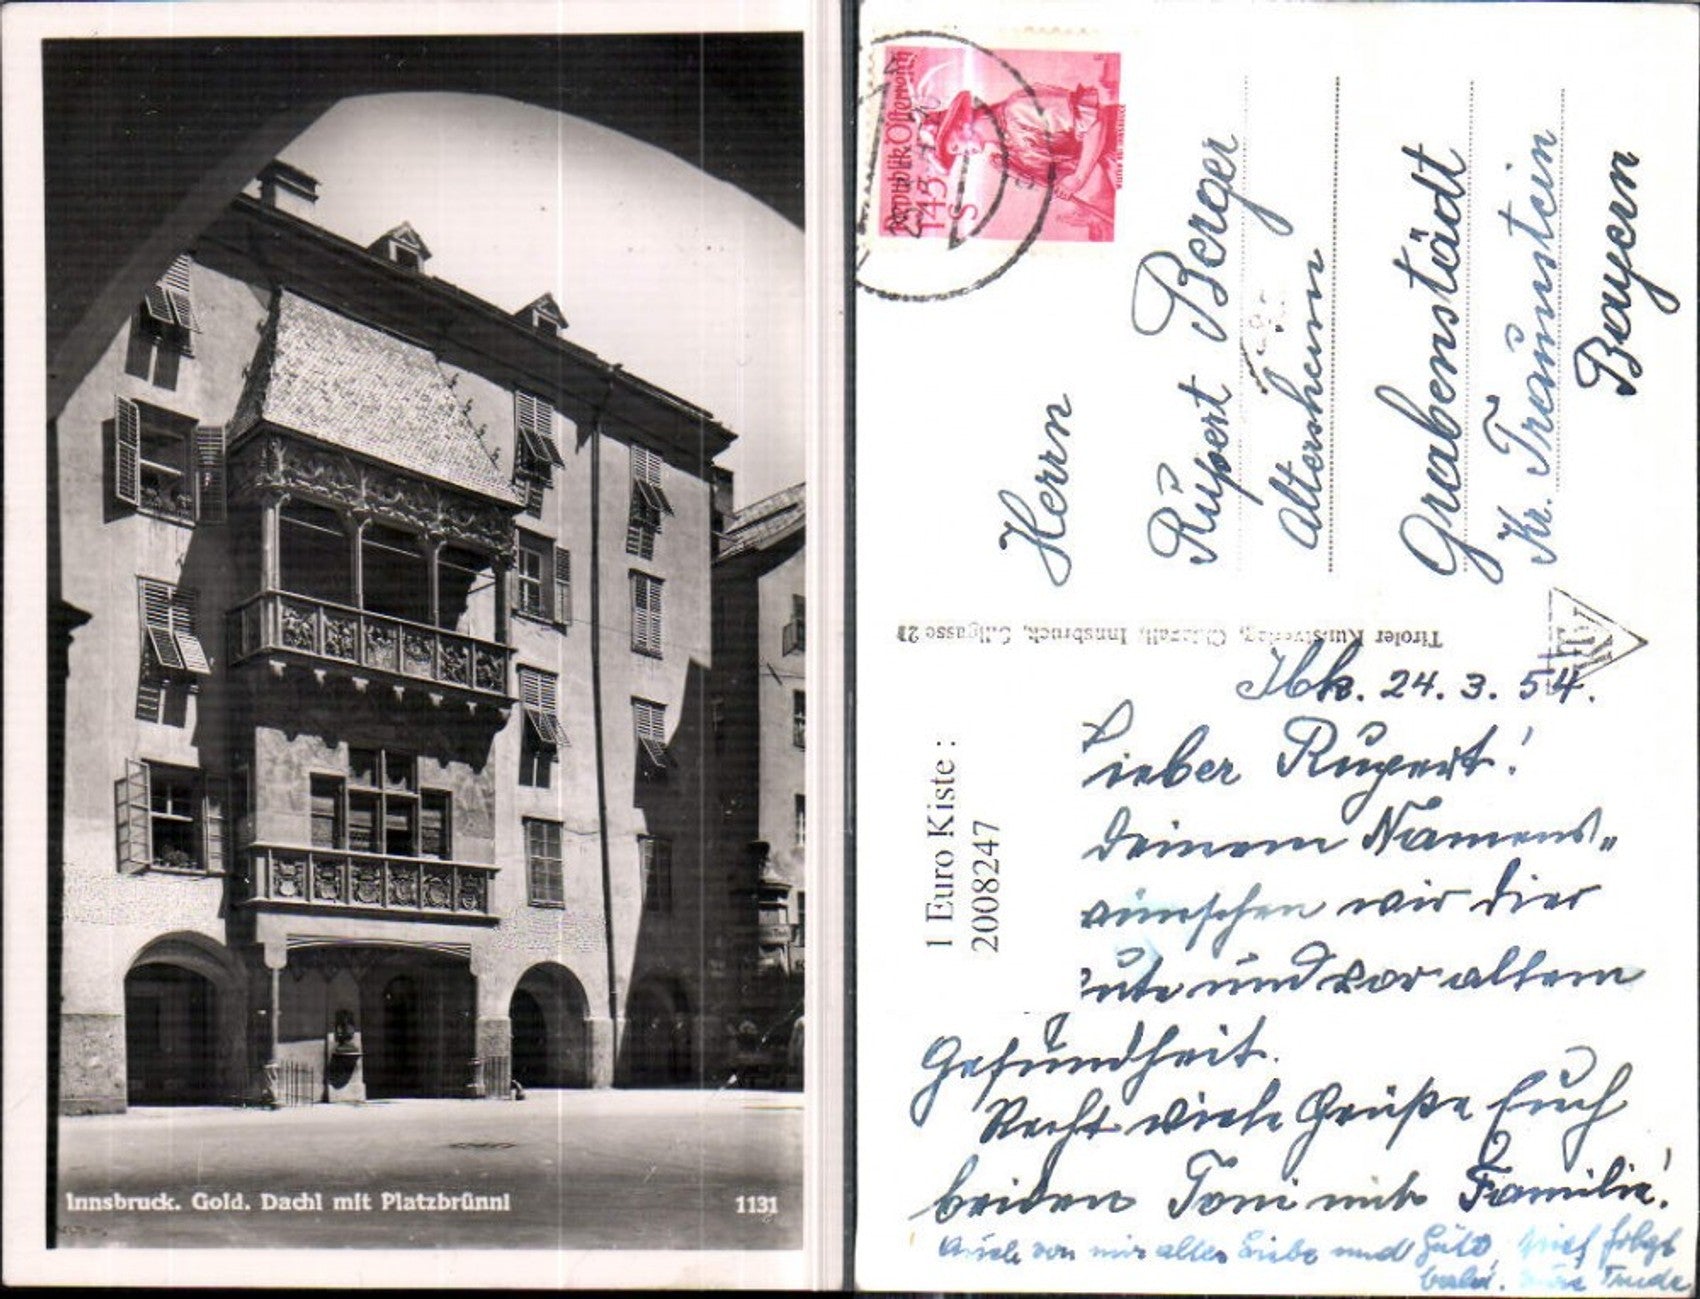 Innsbruck. Gold. Dachl mit Platzbrünnl
1131
Republik Österreich
1.45
S
Herrn
Rupert Berger
Altersheim
Grabenstädt
Kr. Traunstein
Bayern
Tiroler Kunstverlag, Chizzali, Innsbruck, Sillgasse 21
1 Euro Kiste :
2008247
Ibk. 24. 3. 54.
Lieber Rupert!
Deinem Namens-
wünschen wir Dier
Gute und vor allem
Gesundheit.
Recht viele Grüße Euch
beiden Toni mit Familie!
Auch von mir alles Liebe und Gute, Brief folgt
bald. Trude